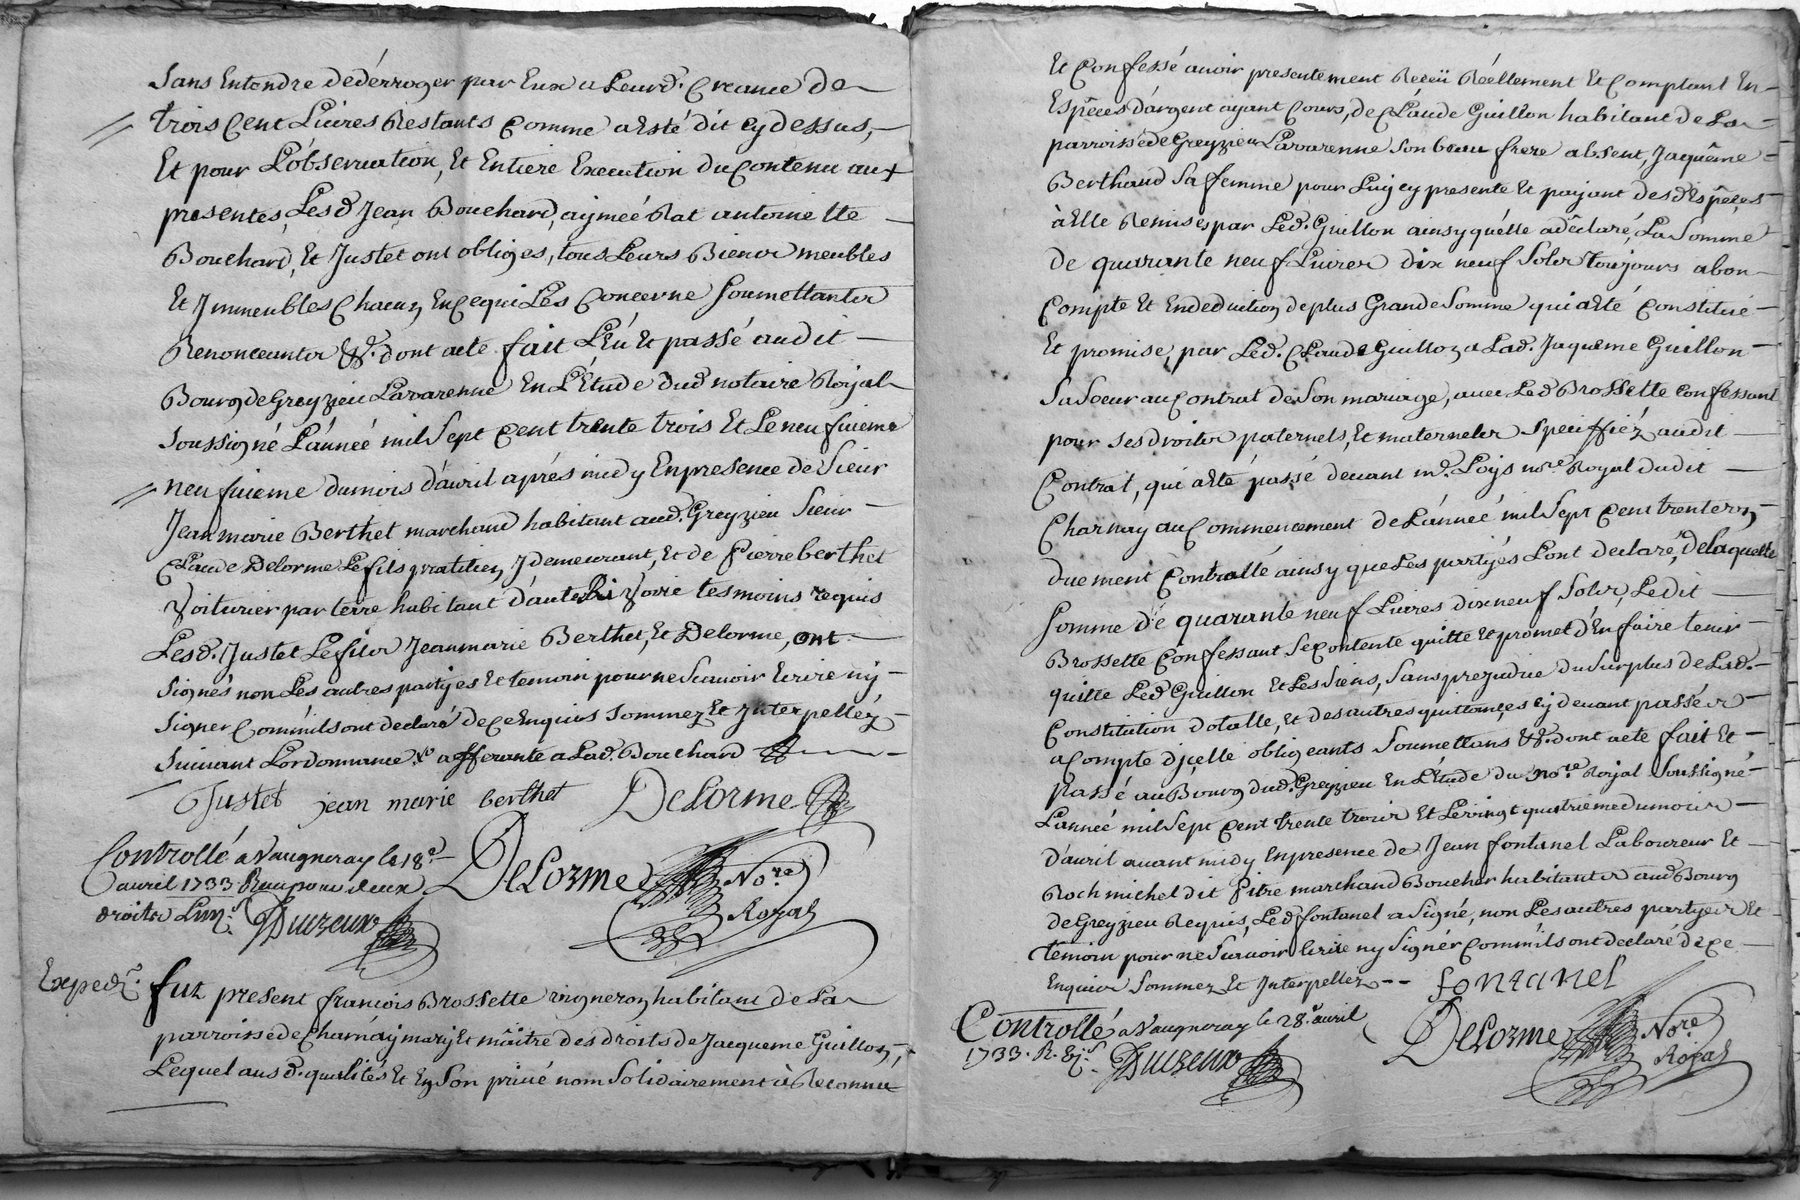 Sans Entendre dedérroger par Eux a Leurd. Creance de
trois Cent Livres Restants Comme a Esté dit Cy dessus,
Et pour L'observation, Et Entiere Execution du Contenu aux
presentes, Lesd Jean Bouchard, aymeé Rat antoinette
Bouchard, Et Justet ont obligés, tous Leurs Biens meubles
Et Immeubles Chacun En Ce qui Les Concerne Soumettantes
Renonceantes &c. dont acte fait Leü Et passé audit
Bourg de Greyzieu Lavarenne En L'Etude dud notaire Royal
Soussigné L'anneé mil Sept Cent trente trois Et Le neufvieme
neufvieme du mois d'avril aprés midy En presence de Sieur
Jean marie Berthet marchand habitant aud. Greyzieu Sieur
Claude Delorme Le fils pratitien y demeurant, Et de Pierre berthet
Voiturier par terre habitant d'aute Rivoire tesmoins requis
Lesd. Justet Le fils Jean marie Berthet, Et Delorme, ont
Signés non Les autres partyes Et temoin pour ne Scavoir Ecrire ny
Signer Comm'ils ont declaré de Ce Enquis Sommez Et Interpellez
Suivant Lordonnance a afferante a Lad. Bouchard
Justet jean marie berthet Delorme
Controllé a Vaugneray le 18e
avril 1733 Reçu pour deux
droits
Duczeux
DeLorme Nore
Royal
Exped.
fut present francois Brossette vigneron habitant de La
parroisse de Charnay mary Et mâitre des droits de Jacqueme Guillon,
Lequel aus d. qualités Et En Son privé nom Solidairement à Reconnu
Et Confessé avoir presentement Receü Réellement Et Comptant En
Espêces d'argent ayant Cours, de Cláude Guillon habitant de La
parroisse de Greyzieu Lavarenne Son beau frere absent, Jaquême
Berthaud Sa femme pour Luy cy presente Et payant des d. Espêces
à Elle Remises par Led. Guillon ainsy qu'elle a dêclaré, La Somme
de quarante neuf Livres dix neuf Sols toujours a bon
Compte Et En deduction de plus Grande Somme qui a Eté Constituée
Et promise, par Led. Claude Guillon a Lad. Jaqueme Guillon
Sa Soeur au Contrat de Son mariage, avec Led Brossette Confessant
pour Ses droits paternels, Et maternels Speciffiéz audit
Contrat, qui a Eté passé devant me. Loijs nore Royal dudit
Charnay au Commencement de L'anneé mil Sept Cent trente un,
duement Controllé ainsy que Les partyés L'ont declaré, de laquelle
Somme de quarante neuf Livres dix neuf Sols, Ledit
Brossette Confessant Se Contente quitte Et promet d'En faire tenir
quitte Led Guillon Et Les Siens, Sans prejudice du Surplus de Lad.
Constitution dotalle, Et des autres quittances cy devant passées
a Compte d'icelle obligeants Soumettans &c. dont acte fait Et
Passé au Bourg dud. Greyzieu En L'Etude du nore Royal Soussigné
L'anneé mil Sept Cent trente trois Et Le vingt quatrieme du mois
d'avril avant midy En presence de Jean fontanel Laboureur Et
Roch michel dit Pitre marchand Boucher habitants aud Bourg
de Greyzieu Requis, Led fontanel a Signé, non Les autres partyes Et
temoin pour ne Scavoir Ecrire ny Signér Comm'ils ont declaré de Ce
Enquis Sommez Et Interpellez
fontanel
Controllé a Vaugneray le 28e avril
1733.
Duczeux
DeLorme Nore
Royal